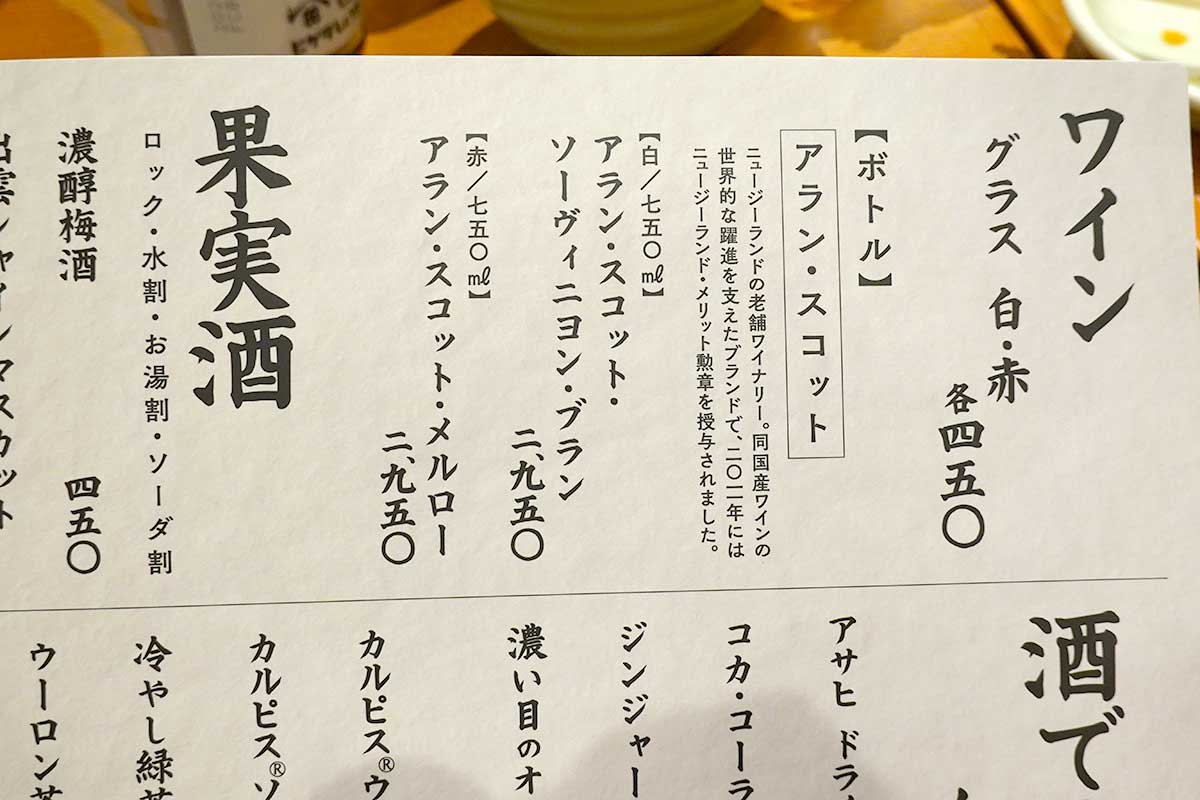 ワイン
グラス 白・赤
各四五〇
【ボトル】
アラン・スコット
ニュージーランドの老舗ワイナリー。同国産ワインの
世界的な躍進を支えたブランドで、二〇一一年には
ニュージーランド・メリット勲章を授与されました。
【白/七五〇㎖】
アラン・スコット・
ソーヴィニヨン・ブラン
二、九五〇
【赤/七五〇㎖】
アラン・スコット・メルロー
二、九五〇
果実酒
ロック・水割・お湯割・ソーダ割
濃醇梅酒 四五〇
出雲シャインマスカット
酒で
アサヒ ドラ
コカ・コーラ
ジンジャー
濃い目のオ
カルピス®ウ
カルピス®ソ
冷やし緑茶
ウーロン茶